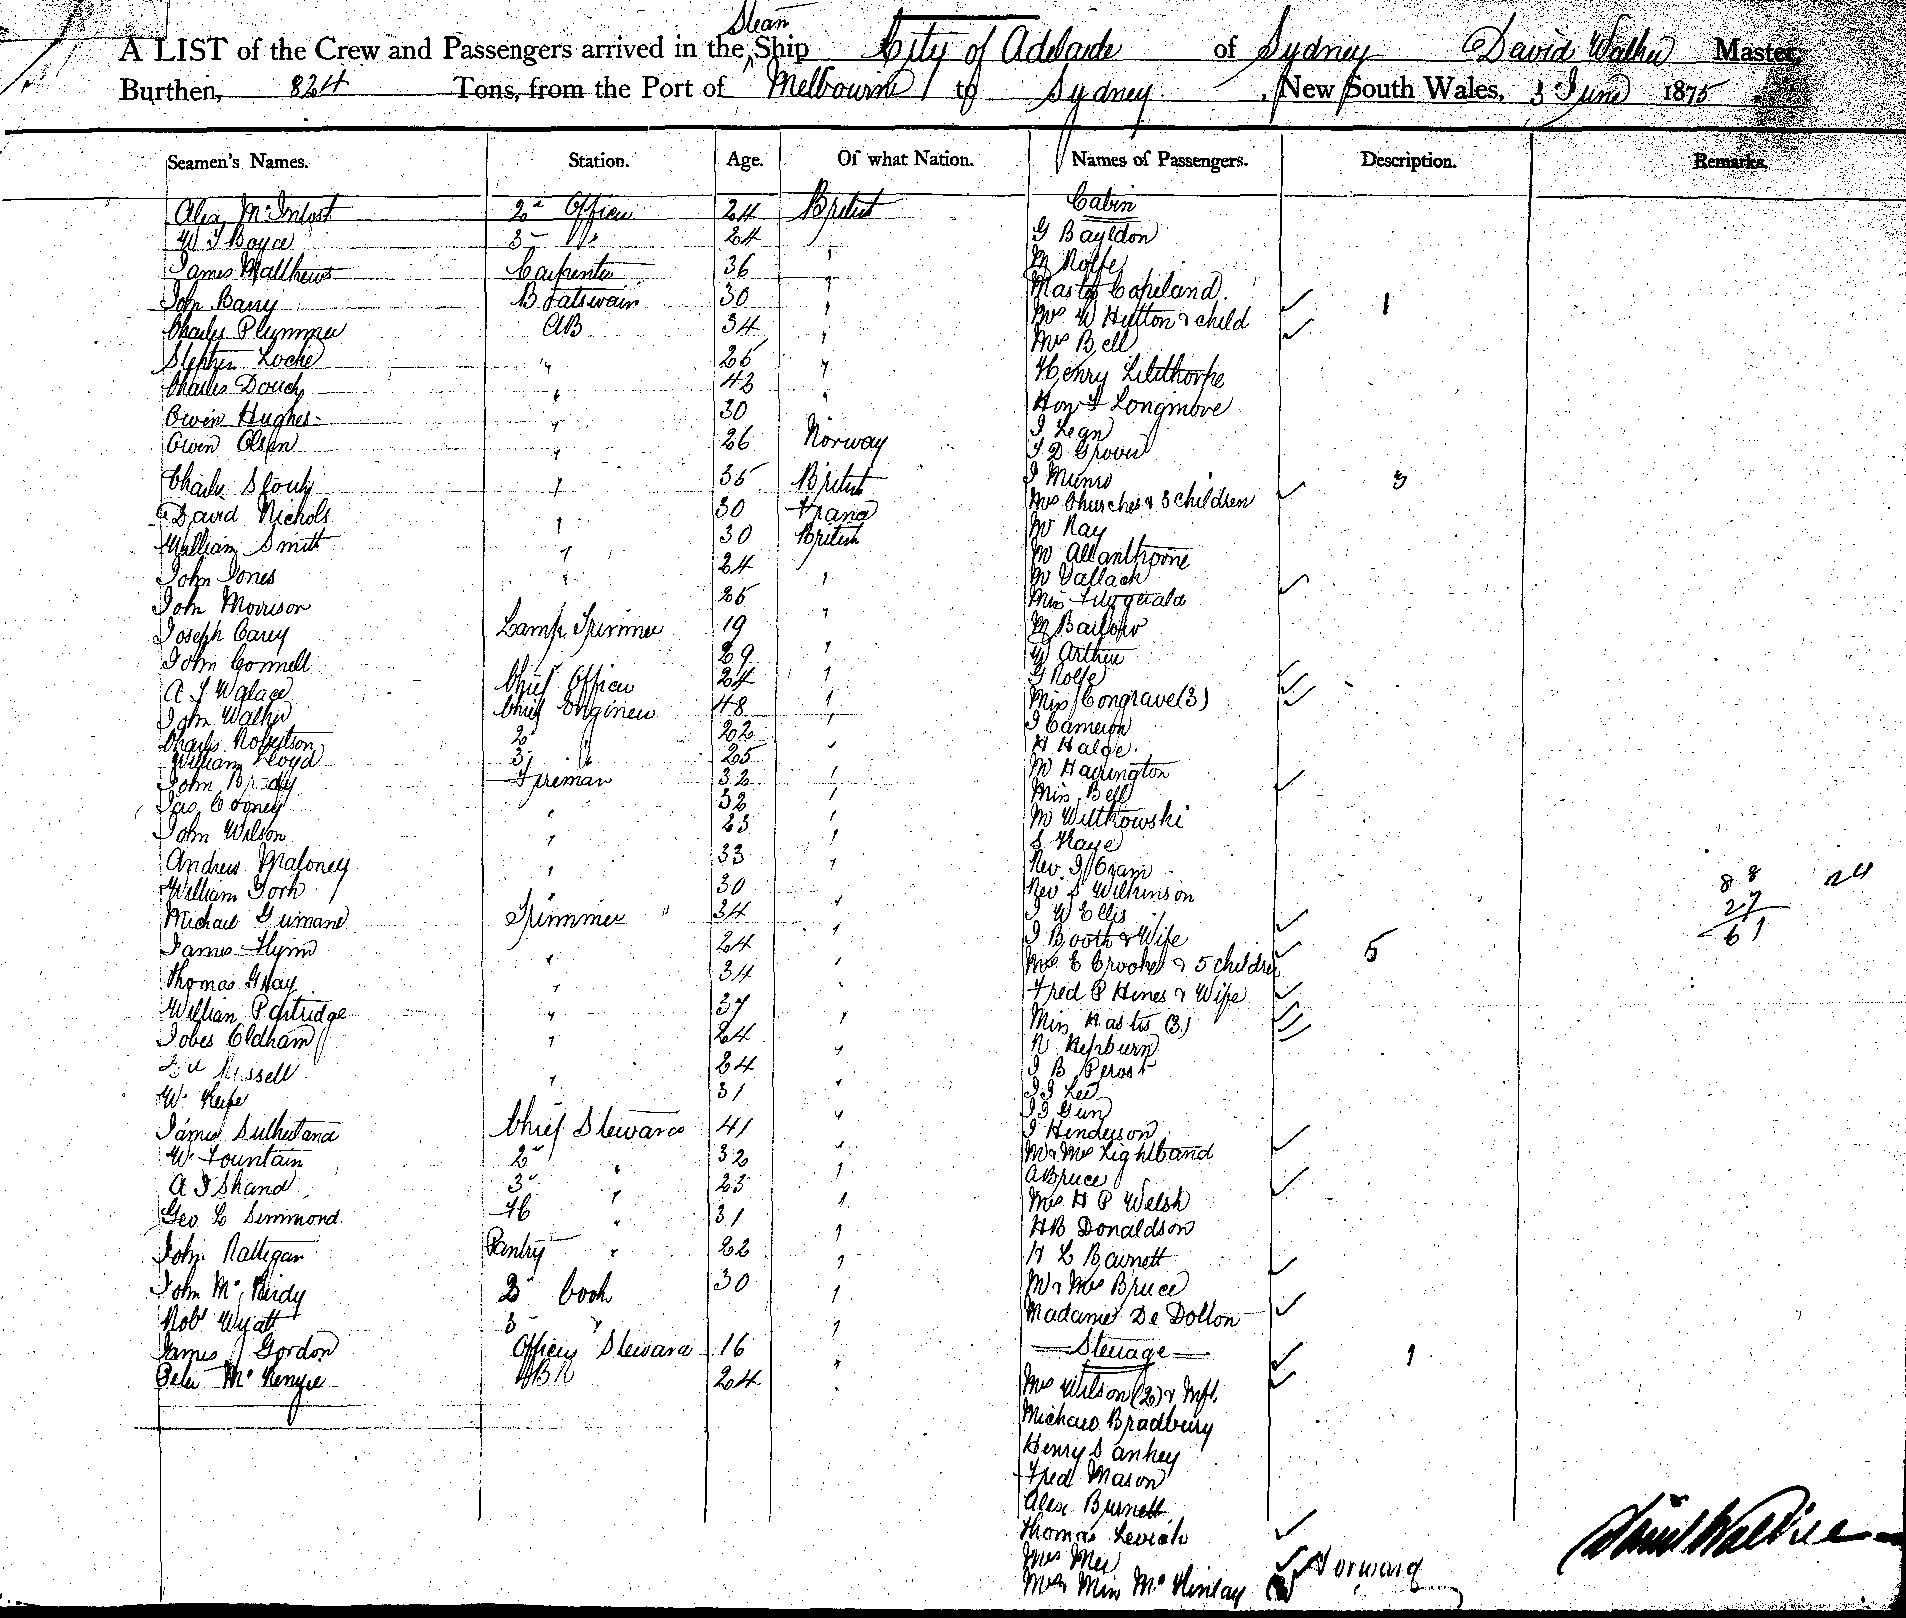 A LIST of the Crew and Passengers arrived in the Steam Ship City of Adelaide of Sydney David Walker Master,
Burthen, 824 Tons, from the Port of Melbourne to Sydney, New South Wales, 3 June 1875
Seamen's Names. Station. Age. Of what Nation. Names of Passengers. Description. Remarks.
Alex McIntosh 2d Officer 24 British
W J Boyce 3 Do 24
James Matthews Carpenter 36
John Barry Boatswain 30
Charles Plymmer AB 34
Stephen Locke " 25
Charles Douch " 43
Owen Hughes " 30
Owen Olsen " 26 Norway
Charles " 35 British
David Nichols " 30 France
William Smith " 30 British
John Jones " 24
John Morrison " 25
Joseph Carey Lamp Trimmer 19
John Connell 29
A J Walace Chief Officer 24
John Walker Chief Engineer 48
Charles Robertson 2 " 22
William Lloyd 3 " 25
John Brady Fireman 32
Jas Cooney " 32
John Wilson " 23
Andrew Maloney " 33
William York " 30
Michael Trimmer " 34
James Flynn " 24
Thomas Gray " 34
William Partridge " 37
Jobes Oldham " 24
Russell " 24
W Keefe " 31
James Sutherland Chief Steward 41
W Fountain 2 " 32
A J Shand 3 " 23
Geo L Simmond " 31
John Rattigan Pantry " 22
John McBirdy 2 Cook 30
Robt Wyatt 3 "
James Gordon Officers Steward 16
Peter McKenzie 24
Cabin
G Bayldon
M Rolfe
Master Copeland
Mrs W Hutton & child 1
Mrs Bell
Henry Lilithorpe
Hon F Longmore
J Legn
J D Grover
J Munro
Mrs Churches & 3 children 3
Mr Ray
Mr Allanthorne
Mr Vallack
Miss Fitzgerald
M Barlow
W Arthur
G Rolfe
Miss Congrave (3)
J Cameron
H Halge
M Harrington
Miss Bell
M Wittkowski
S Kaye
Rev J Oram
Rev S Wilkinson
J W Ellis
J Booth & Wife
Mrs E Crooke & 5 children 5
Fred P Hines & Wife
Miss Hastis (3)
R Hepburn
J B Perost
J J Lee
J J Gun
J Henderson
Mr & Mrs Lightband
A Bruce
Mrs H P Welsh
H B Donaldson
H L Barnett
Mr & Mrs Bruce
Madame De Dolton
Steerage 1
Mrs Wilson (2) & Inft.
Michael Bradbury
Henry Sankey
Fred Mason
Alex Burnett
Thomas Leviah
Mrs Mes
Miss McKinlay Forward
88 24
27
61
David Walker